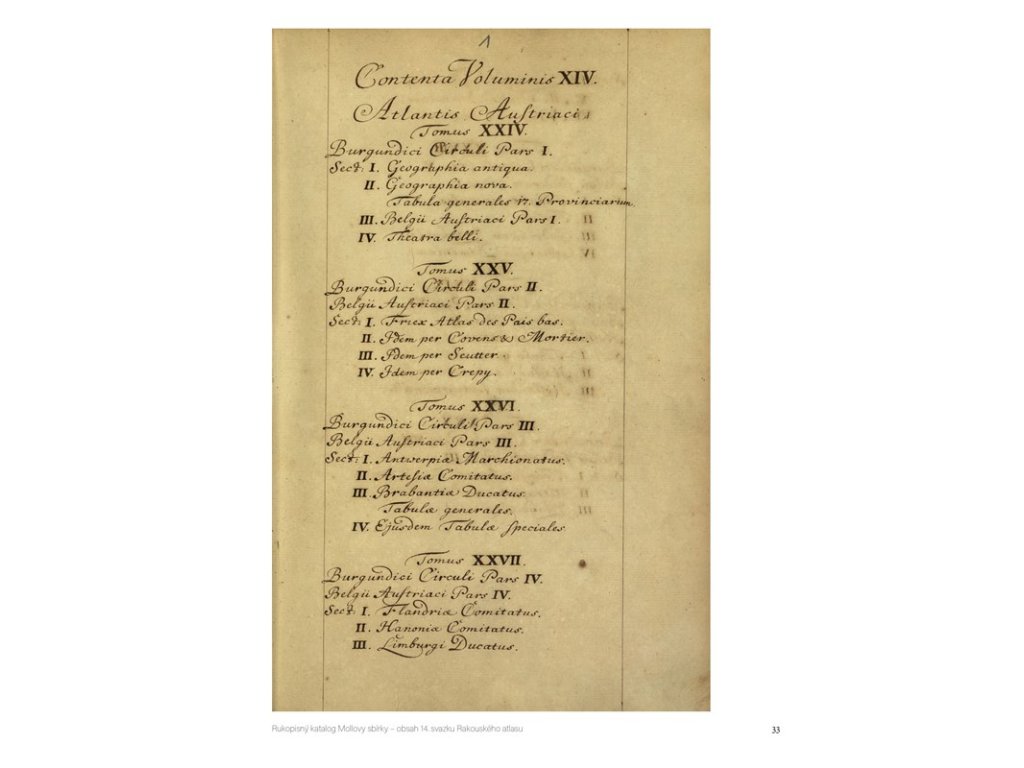 1
Contenta Voluminis XIV.
Atlantis Auſtriaci
Tomus XXIV.
Burgundici Circuli Pars I.
Sect: I. Geographia antiqua.
II. Geographia nova.
Tabula generales 17. Provinciarum.
III. Belgii Auſtriaci Pars I.
IV. Theatra belli.
Tomus XXV.
Burgundici Circuli Pars II.
Belgii Auſtriaci Pars II.
Sect: I. Friex Atlas des Pais bas.
II. Idem per Covens & Mortier.
III. Idem per Seutter
IV. Idem per Crepy.
Tomus XXVI.
Burgundici Circuli Pars III.
Belgii Auſtriaci Pars III.
Sect: I. Antwerpiæ Marchionatus.
II. Arteſiæ Comitatus.
III. Brabantiæ Ducatus.
Tabulæ generales.
IV. Ejusdem Tabulæ ſpeciales
Tomus XXVII.
Burgundici Circuli Pars IV.
Belgii Auſtriaci Pars IV.
Sect: I. Flandriæ Comitatus.
II. Hanoniæ Comitatus.
III. Limburgi Ducatus.
Rukopisný katalog Mollovy sbírky – obsah 14. svazku Rakouského atlasu
33